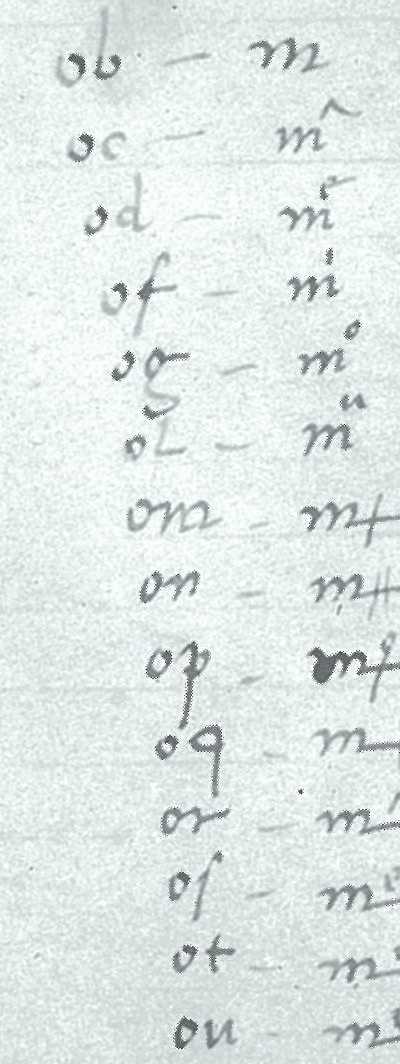 ob — m
oc — m^
od — mʳ
of — mⁱ
og — mᵒ
oL — mᵘ
om — m
on — m
op — m
oq — m
or — m
oſ — m
ot — m
ou — m